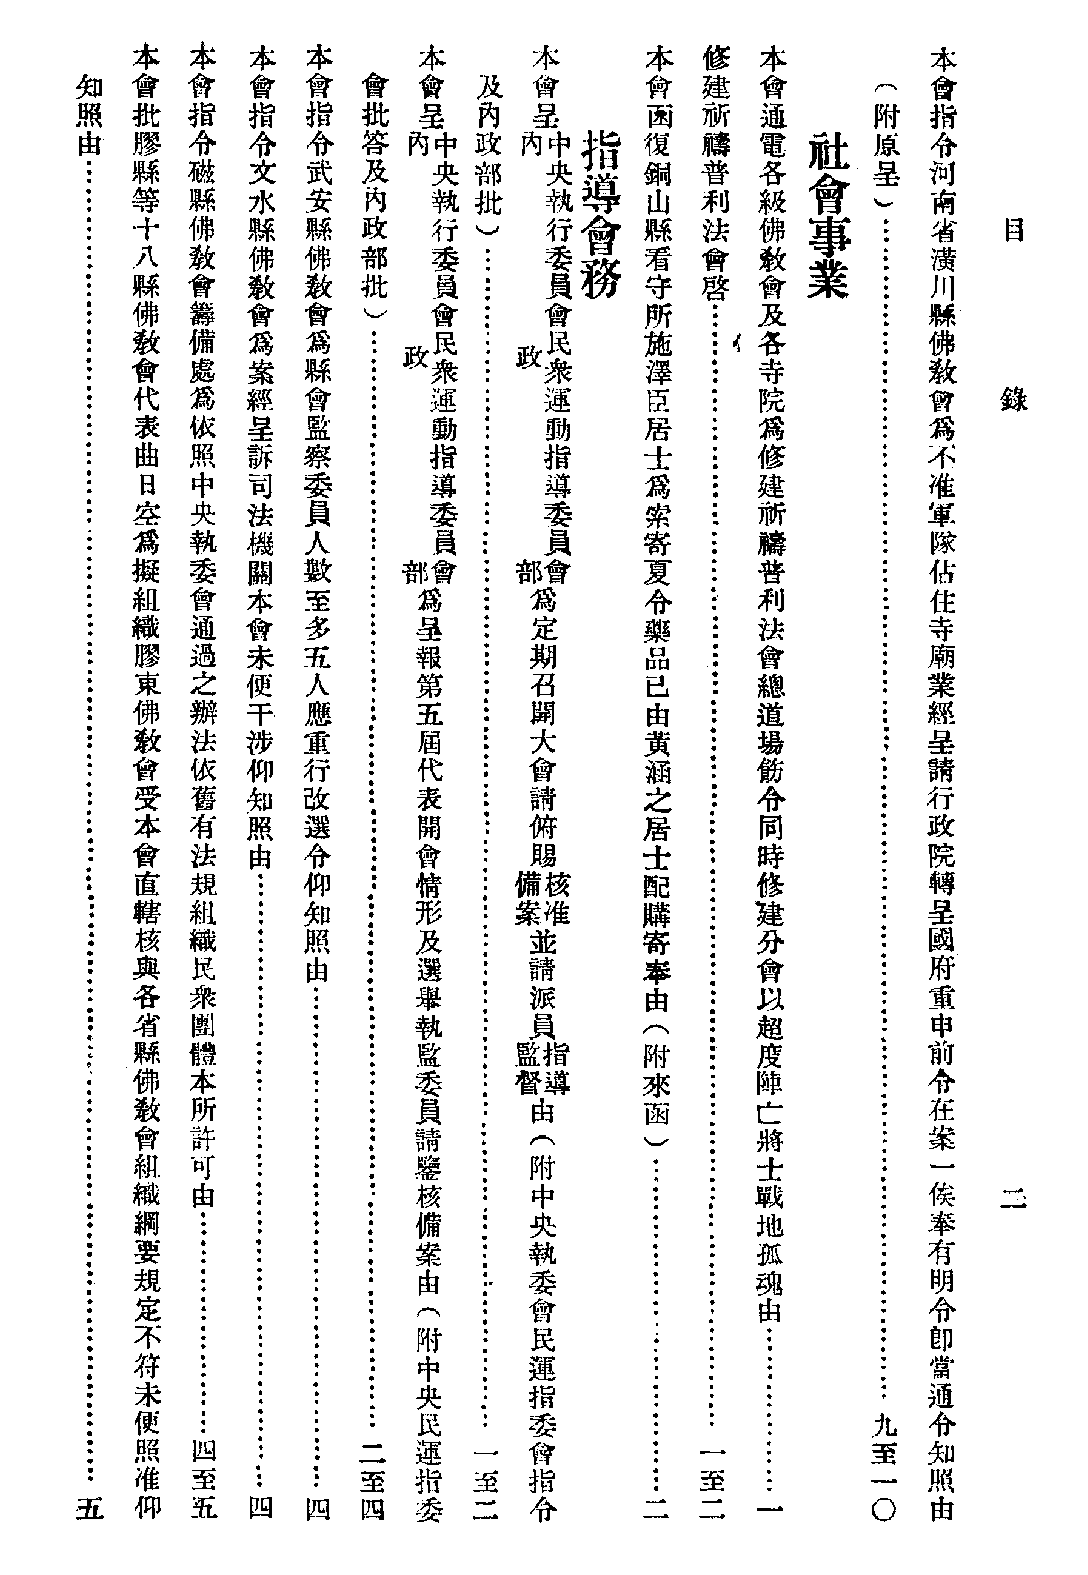 目錄 二
本會指令河南省潢川縣佛敎會爲不准軍隊佔住寺廟業經呈請行政院轉呈國府重申前令在案一俟奉有明令卽當通令知照由
（附原呈）……九至一〇
社會事業
本會通電各級佛敎會及各寺院爲修建祈禱普利法會總道場飭令同時修建分會以超度陣亡將士戰地孤魂由……一
修建祈禱普利法會啓……一至二
本會函復銅山縣看守所施澤臣居士爲索寄夏令藥品已由黃涵之居士配購寄奉由（附來函）……二
指導會務
本會呈中央執行委員會民衆運動指導委員會內政部爲定期召開大會請俯賜核准備案並請派員指導監督由（附中央執委會民運指委會指令
及內政部批）……一至二
本會呈中央執行委員會民衆運動指導委員會內政部爲呈報第五屆代表開會情形及選舉執監委員請鑒核備案由（附中央民運指委
會批答及內政部批）……二至四
本會指令武安縣佛敎會爲縣會監察委員人數至多五人應重行改選令仰知照由……四
本會指令文水縣佛敎會爲案經呈訴司法機關本會未便干涉仰知照由……四
本會指令磁縣佛敎會籌備處爲依照中央執委會通過之辦法依舊有法規組織民衆團體本所許可由……四至五
本會批膠縣等十八縣佛敎會代表曲日空爲擬組織膠東佛敎會受本會直轄核與各省縣佛敎會組織綱要規定不符未便照准仰
知照由……五